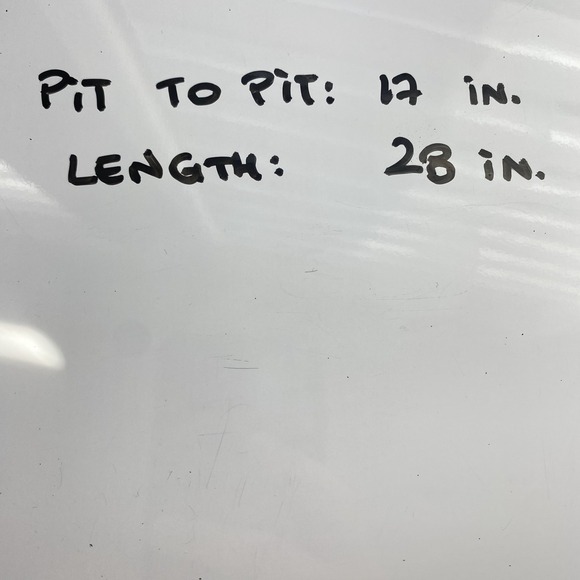 PiT TO PiT: 17 iN.
LENGTH: 28 iN.